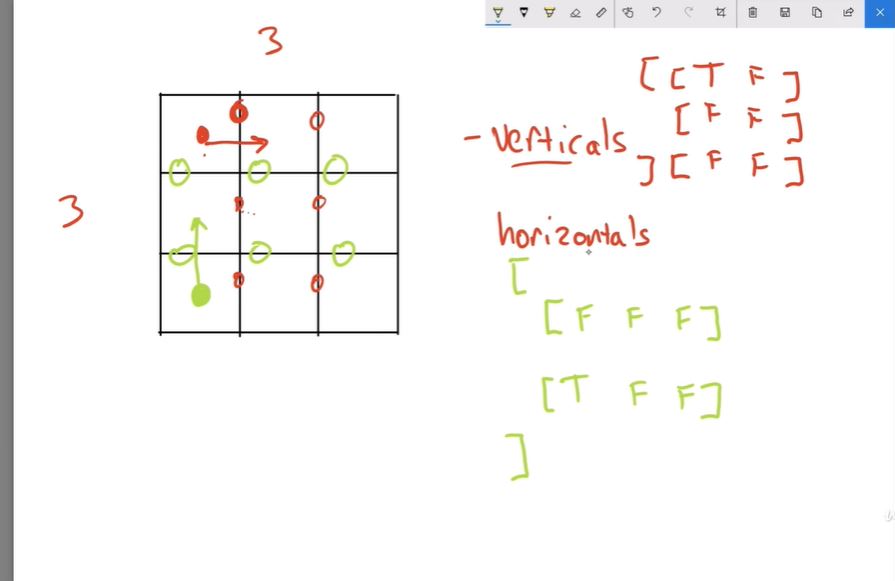 3
3
[ [ T F ]
- verticals [ F F ]
] [ F F ]
horizontals
[
[ F F F ]
[ T F F ]
]